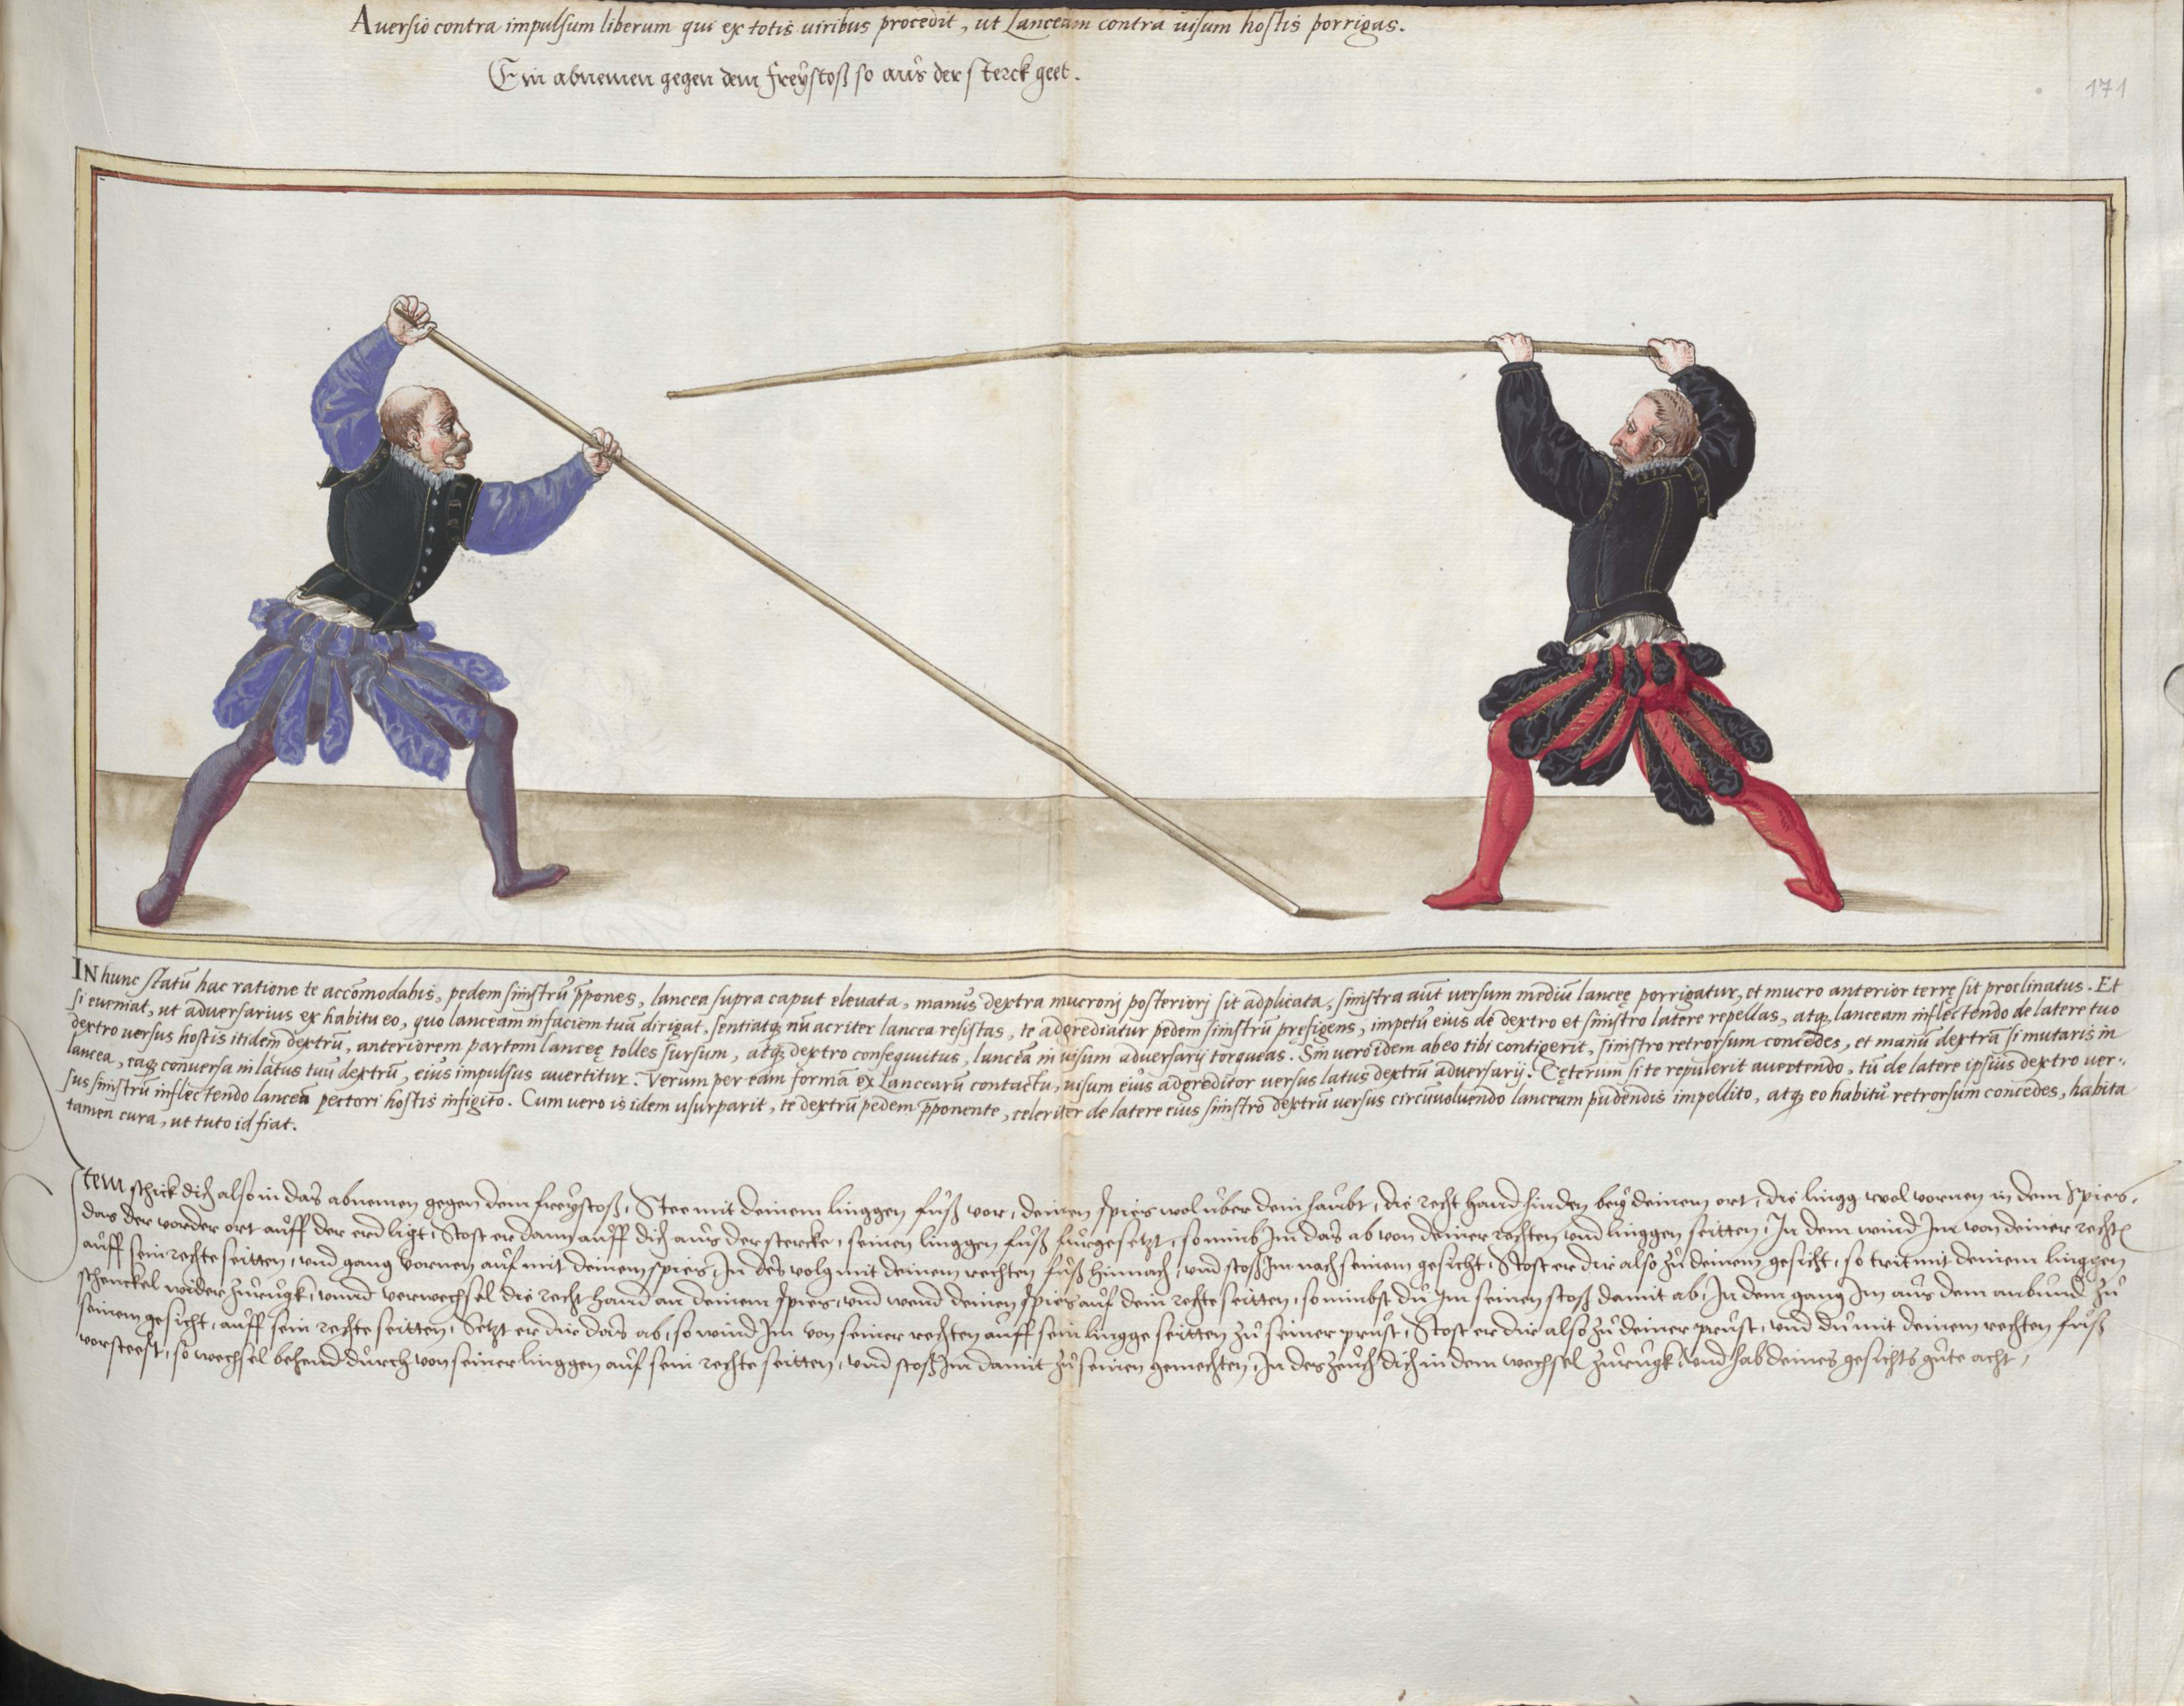 Aversio contra impulsum liberum qui ex totis viribus procedit, ut Lanceam contra visum hostis porrigas.
Ein abnemen gegen dem freÿstoß so aus der sterck geet.
171
IN hunc statū hac ratione te accōmodabis, pedem sinistrū p̄pones, lancea supra caput elevata, manus dextra mucronj posteriorj sit adplicata, sinistra aūt versum mediū lanceę porrigatur, et mucro anterior terrę sit proclinatus. Et
si eveniat, ut adversarius ex habitu eo, quo lanceam in faciem tuā dirigat, sentiatq; nū acriter lancea resistas, te adgrediatur pedem sinistrū prefigens, impetū eius de dextro et sinistro latere repellas, atq; lanceam inflectendo de latere tuo
dextro versus hostis itidem dextrū, anteriorem partem lanceę tolles sursum, atq; dextro consequutus, lanceā in visum adversarij torqueas. Sin vero idem ab eo tibi contigerit, sinistro retrorsum concedes, et manū dextrā si mutaris in
lancea, eaq; conversa in latus tuū dextrū, eius impulsus avertitur. Verum per eam formā ex lancearū contactu, visum eius adgreditor versus latus dextrū adversarij. Cęterum si te repulerit avertendo, tū de latere ipsius dextro ver-
sus sinistrū inflectendo lanceā pectori hostis infigito. Cum vero is idem usurparit, te dextrū pedem p̄ponente, celeriter de latere eius sinistro dextrū versus circūvolvendo lanceam pudendis impellito, atq; eo habitu retrorsum concedes, habita
tamen cura, ut tuto id fiat.
Item schick dich also in das abnemen gegen dem freÿstoß, Stee mit deinem linggen fuß vor, deinen spies wol uber dein haubt, die recht hand hinden beÿ deinem ort, die lingg wol vornen in dem Spies,
das der vorder ort auff der erd ligt, Stost er dann auff dich aus der stercke, seinen linggen fuß furgesetzt, so nimb Im das ab von deiner rechten und linggen seitten, In dem wind Im von deiner recht
auff sein rechte seitten, und gang vornen auf mit deinem spies, In des volg mit deinem rechten fuß hinnach, und stoß Im nach seinem gesicht, Stost er dir also zu deinem gesicht, so trit mit deinem linggen
schenckel wider zurugk, unnd verwechsel die recht hand an deinem spies, und wend deinen spies auf dein rechte seitten, so nimbst du Im seinen stoß damit ab, In dem gang Im aus dem anbund zu
seinem gesicht, auff sein rechte seitten, Setzt er dir das ab, so wind Im von seiner rechten auff sein lingge seitten zu seiner prust, Stost er dir also zu deiner prust, und du mit deinem rechten fuß
vorsteest, so wechsel behend durch von seiner linggen auf sein rechte seitten, und stoß Im damit zu seinen gemechten, In des zeuch dich in dem wechsel zurugk und hab deines gesichts gute acht,